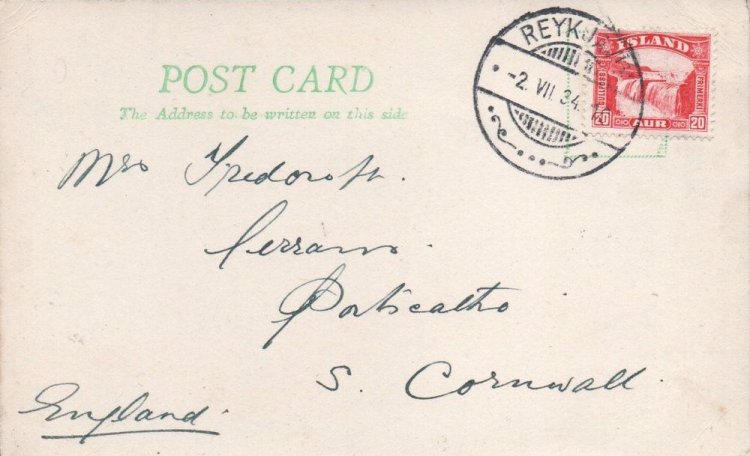 POST CARD
The Address to be written on this side
REYKJAVÍK
-2. VII. 34.
ÍSLAND
FRÍMERKI
20 AUR 20
Mrs Tredcroft.
Cerrans.
Porthcatho
S. Cornwall.
England.